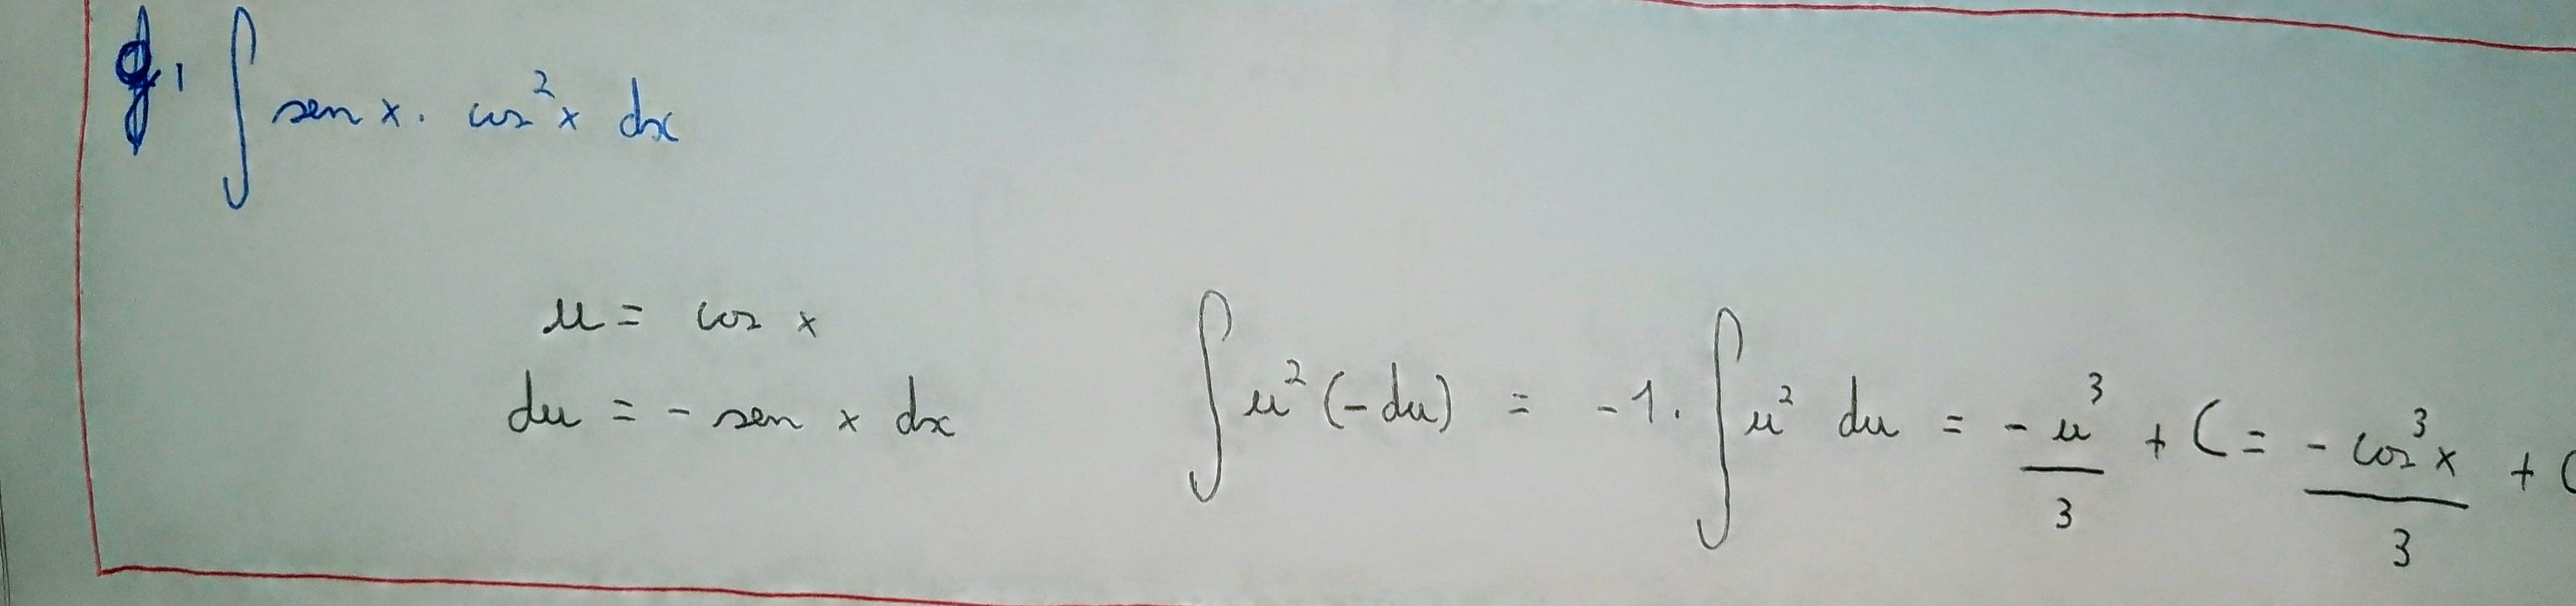 ∫ sen x . cos²x dx
u = cos x
du = - sen x dx
∫ u² (-du) = -1 . ∫ u² du = -u³/3 + C = -cos³x/3 + C